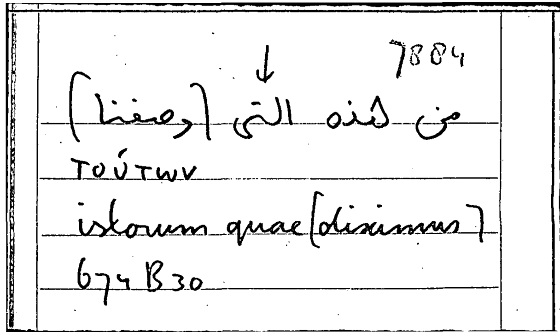 7884
↓
من هذه التي [وصفنا]
τούτων
istorum quae [diximus]
674 B 30